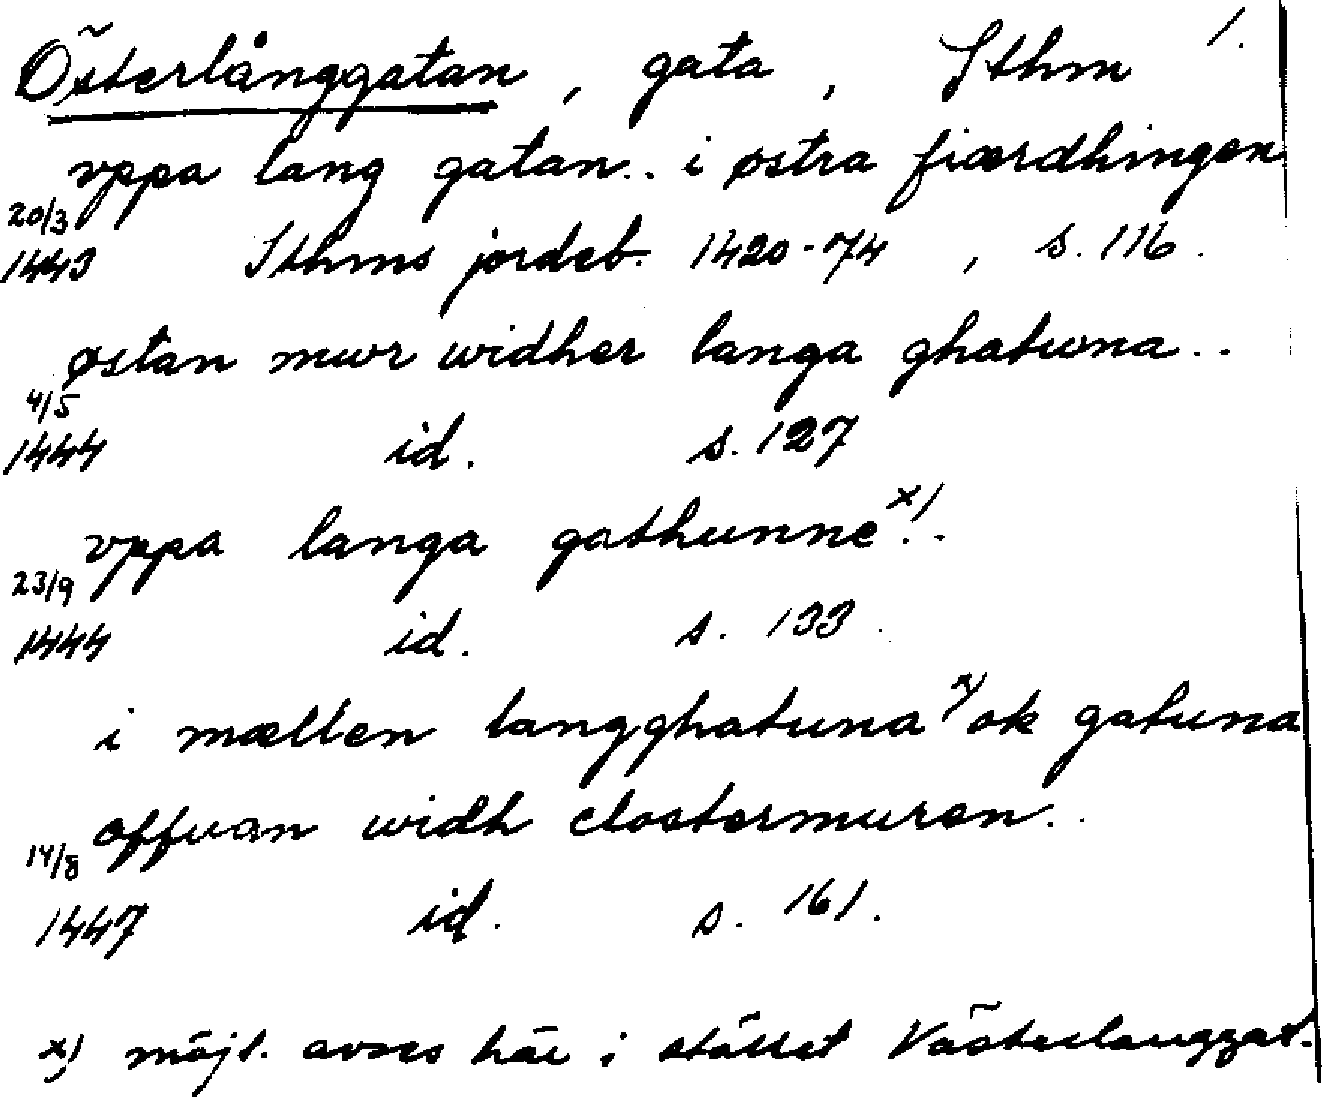 Österlånggatan, gata, Sthm 1.
vppa lang gatan.. i østra fiærdhingen
20/3
1443 Sthms jordeb. 1420-74, s. 116.
østan mwr widher langa ghatwna..
4/5
1444 id. s. 127
vppa langa gathunne x)..
23/9
1444 id. s. 133.
i mællen langghatuna x) ok gatuna
offuan widh clostermuren..
14/8
1447 id. s. 161.
x) möjl. avses här i stället Västerlanggat.